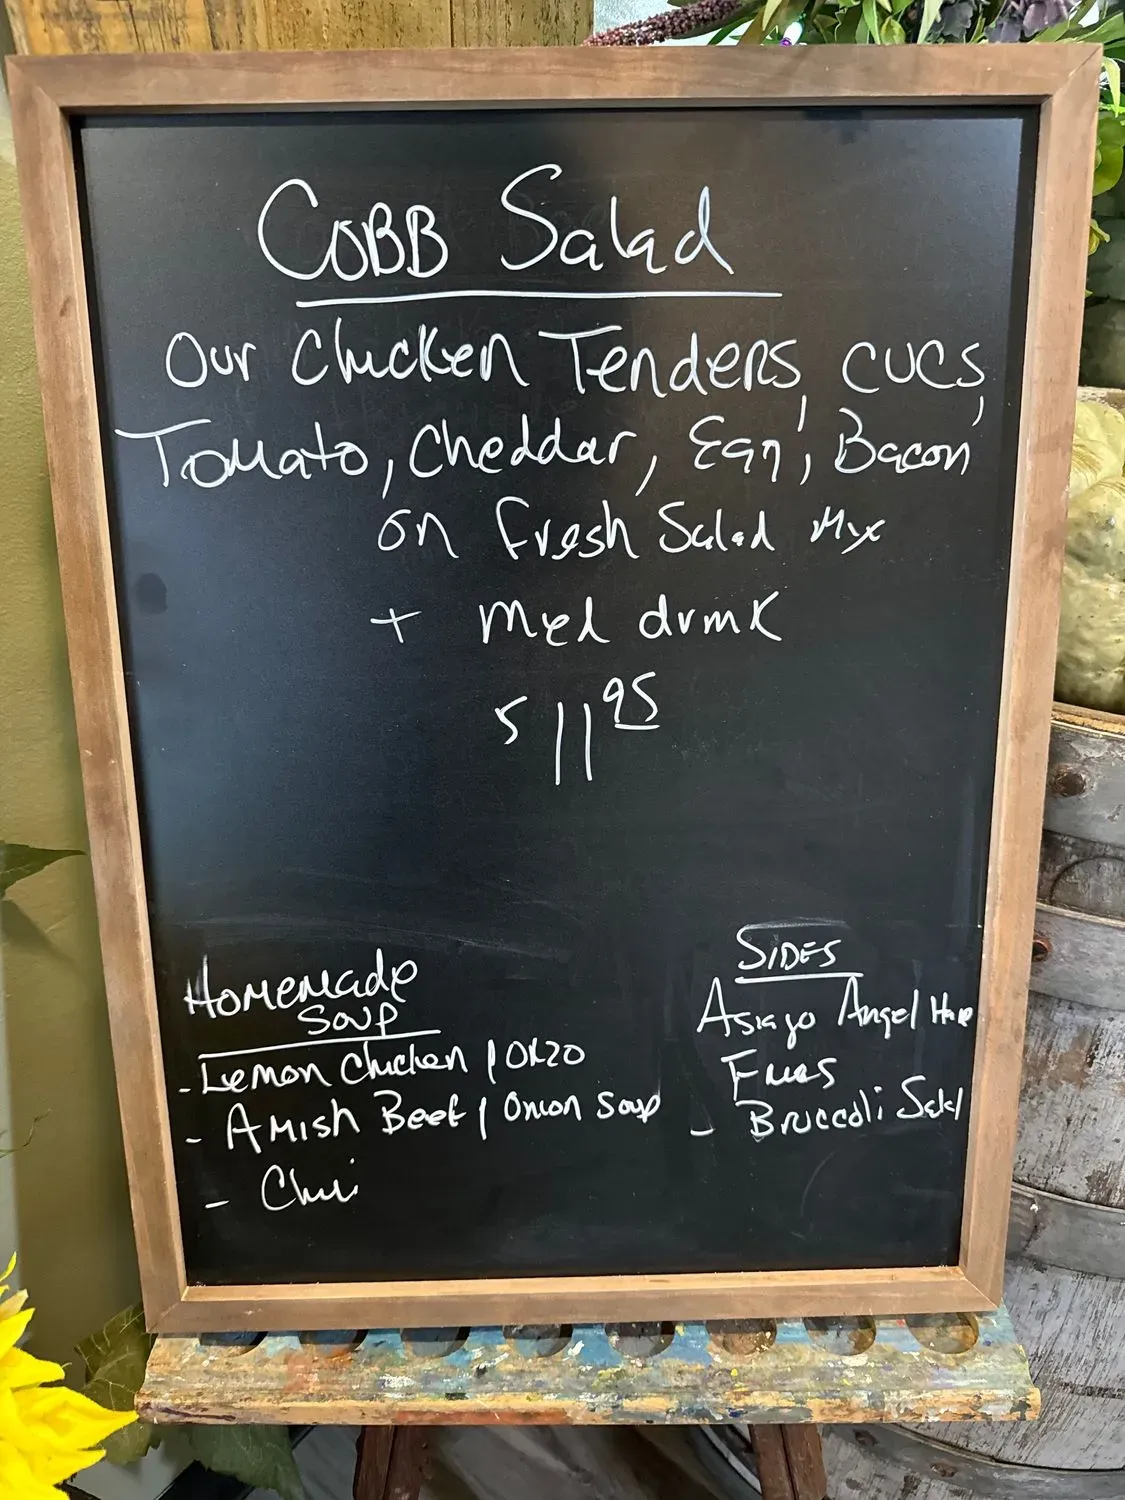 COBB Salad
Our Chicken Tenders, CUCS,
Tomato, Cheddar, Egg, Bacon
on Fresh Salad Mix
+ Med drink
$ 11 95
Homemade
Soup
- Lemon Chicken / ORZO
- Amish Beef / Onion Soup
- Chili
SIDES
Asiago Angel Hair
Fries
- Broccoli Salad